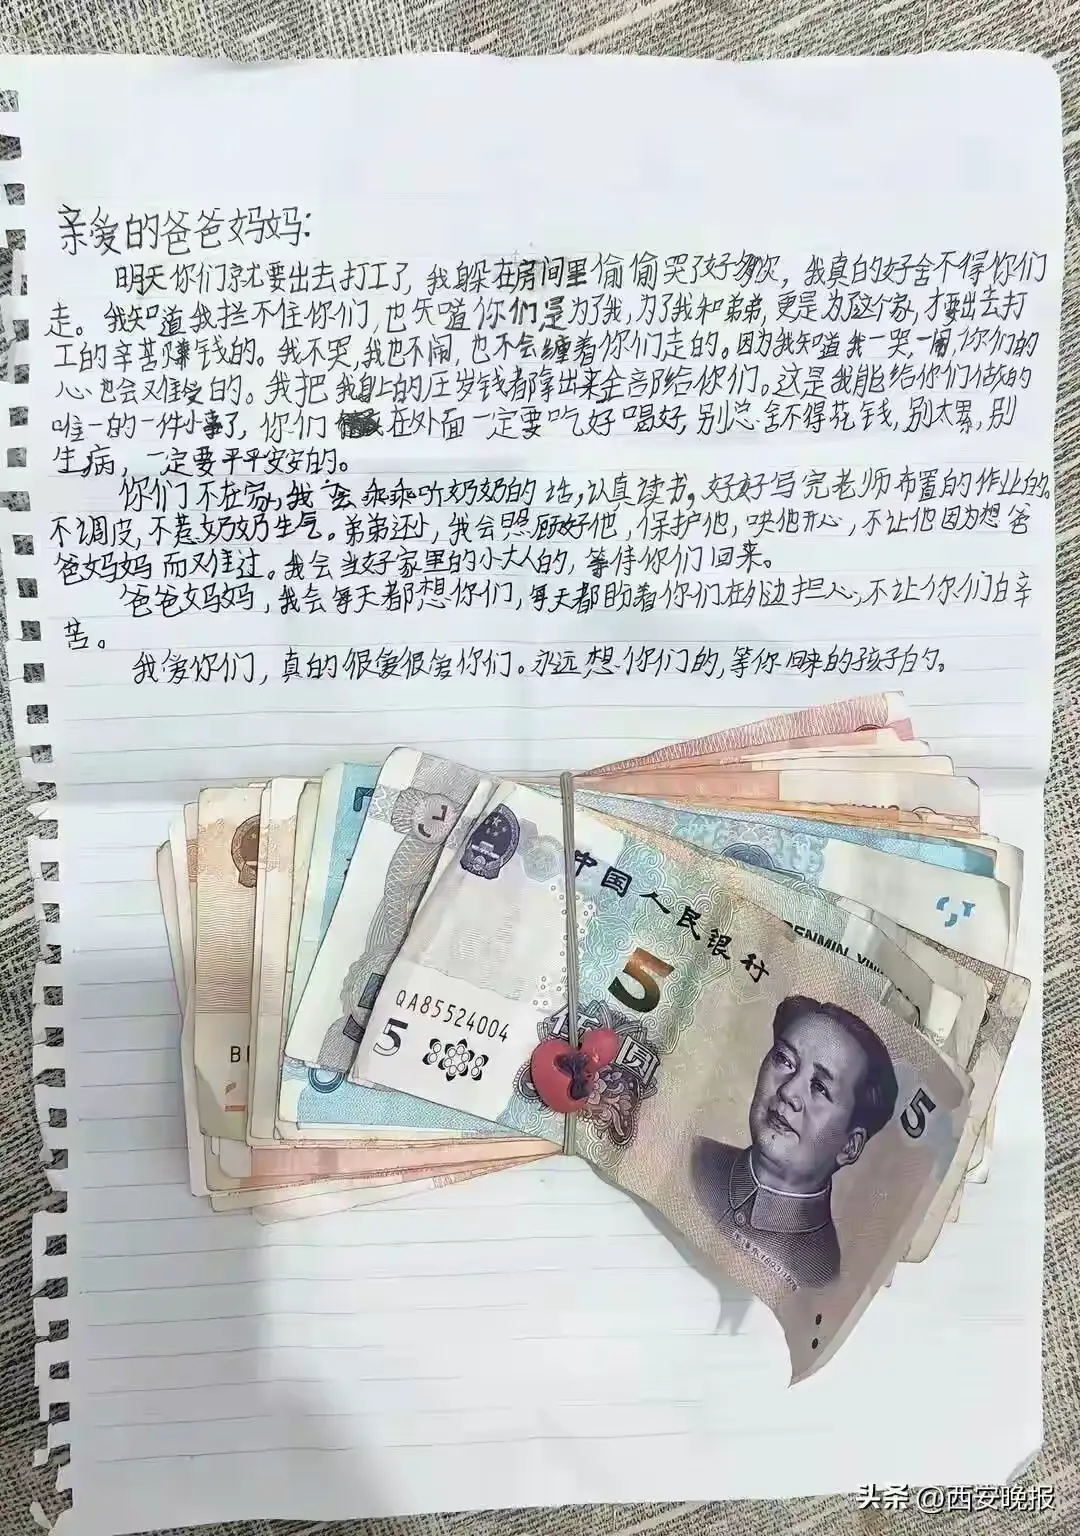 亲爱的爸爸妈妈:
明天你们就要出去打工了,我躲在房间里偷偷哭了好多次,我真的好舍不得你们
走。我知道我拦不住你们,也知道你们是为了我,为了我和弟弟,更是为了这个家,才要出去打
工的辛苦赚钱的。我不哭,我也不闹,也不会缠着你们走的。因为我知道我一哭,一闹,你们的
心也会难受的。我把我身上的压岁钱都拿出来全部给你们。这是我能给你们做的
唯一的一件小事了,你们在外面一定要吃好喝好,别总舍不得花钱,别太累,别
生病,一定要平平安安的。
你们不在家,我会乖乖听奶奶的话,认真读书,好好写完老师布置的作业的。
不调皮,不惹奶奶生气。弟弟还小,我会照顾好他,保护他,哄他开心,不让他因为想爸
爸妈妈而难过。我会当好家里的小大人的,等待你们回来。
爸爸妈妈,我会每天都想你们,每天都盼着你们在外边担心,不让你们白辛
苦。
我爱你们,真的很爱很爱你们。永远想你们的,等你回来的孩子的。
中国人民银行
RENMIN YIN
5
QA85524004
5
伍圆
5
毛泽东 1893-1976
头条 @西安晚报